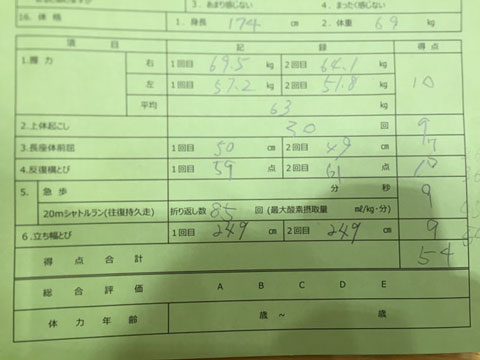 3. あまり感じない 4. まったく感じない
16. 体 格 1. 身長 174 cm 2. 体重 69 kg
項 目 記 録 得 点
1.握 力 右 1回目 69.5 kg 2回目 64.1 kg
左 1回目 57.2 kg 2回目 51.8 kg 10
平均 63 kg
2.上体起こし 30 回 9
3.長座体前屈 1回目 50 cm 2回目 49 cm
4.反復横とび 1回目 59 点 2回目 61 点 10
5. 急 歩 分 秒 9
20mシャトルラン(往復持久走) 折り返し数 85 回 (最大酸素摂取量 ml/kg・分)
6.立ち幅とび 1回目 249 cm 2回目 249 cm 9
得 点 合 計 54
総 合 評 価 A B C D E
体 力 年 齢 歳 ~ 歳